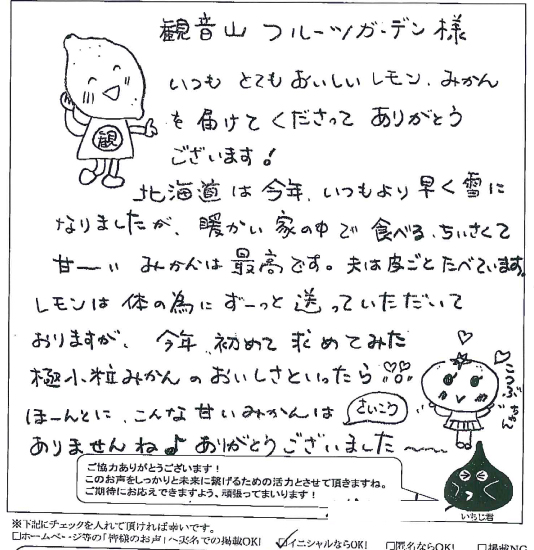 観音山 フルーツガーデン 様
いつも とても おいしい レモン、みかん
を 届けて くださって ありがとう
ございます!
観
北海道は 今年、いつもより 早く 雪に
なりましたが、暖かい 家の中で 食べる、ちいさくて
甘ーい みかんは 最高です。夫は皮ごと たべています。
レモンは 体の為に ずーっと 送っていただいて
おりますが、今年、初めて 求めてみた
極小粒みかんの おいしさといったら
こつぶちゃん
ほーんとに、こんな 甘いみかんは さいこう
ありませんね♪ ありがとうございました〜
ご協力ありがとうございます!
このお声をしっかりと未来に繋げるための活力とさせて頂きますね。
ご期待にお応えできますよう、頑張ってまいります!
いちじ君
※下記にチェックを入れて頂ければ幸いです。
□ホームページ等の「皆様のお声」へ実名での掲載OK! ☑イニシャルならOK! □匿名ならOK! □掲載NG